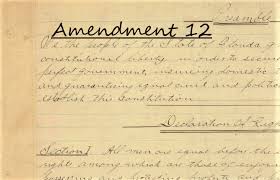 Preamble
Amendment 12
We, the people of the State of Florida
constitutional liberty, in order to secure
perfect government, insuring domestic
and guaranteeing equal civil and political
establish this Constitution
Declaration of Rights
Section 1 All men are equal before the
right, among which are those of enjoying
possessing and